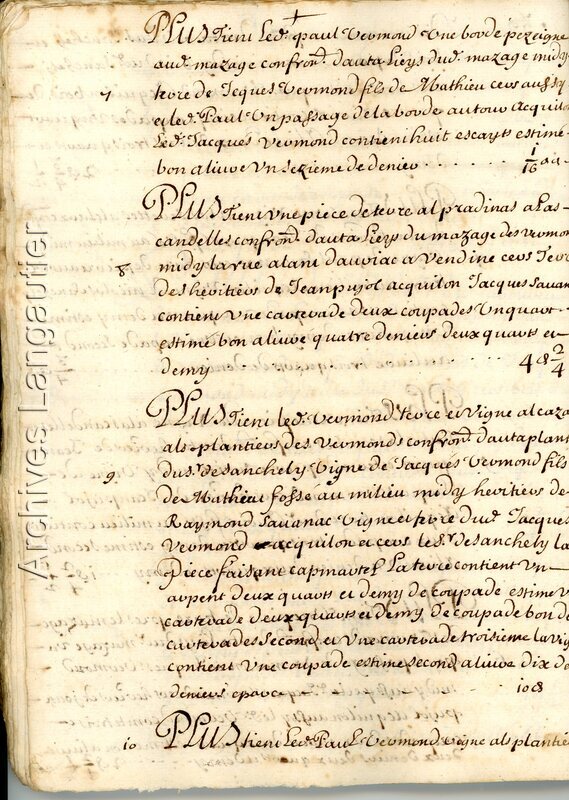 PLus tient Led. paul Vermond Une borde pezeigne
aud. mazage confron. d'auta Lieys dud. mazage midy
7 terre de Jcques Vermond fils de Mathieu cers aussy
et led. Paul Un passage de la borde autour acquilon
Led. Jacques Vermond contient huit escayts estime
bon alivre Un sezieme de denier . . . . . . 1/16
PLus tient Une piece de terre al pradinas a Las
candelles confron. dauta Lieys du mazage des Vermon
8 midy la rue alant dauriac a Vendine cers Terr
des heritiers de Jean pujol acquilon Jacques Savan
contient Une carterade deux coupades Un quart
estime bon alivre quatre deniers deux quarts et
demy . . . . . 4 d 2/4
PLus Tient led. Vermond terre et Vigne al caza
als plantiers des Vermonds confron. dauta plant
9 du sr. de sanchely Vigne de Jacques Vermond fils
de Mathieu fosse au milieu midy heritiers de
Raymond Savanac Vigne et terre dud. Jacques
Vermond acquilon et cers le sr. de sanchely La
piece faisant capmartel La terre contient Un
arpent deux quarts et demy de coupade estime U
carterade deux quarts et demy de coupade bon de
carterades second et Une carterade troisieme la vig
contient Une coupade estime second alivre dix de
deniers 10 d
10 PLus tient Led. PauL Vermond Vigne als plantie
Archives Langautier